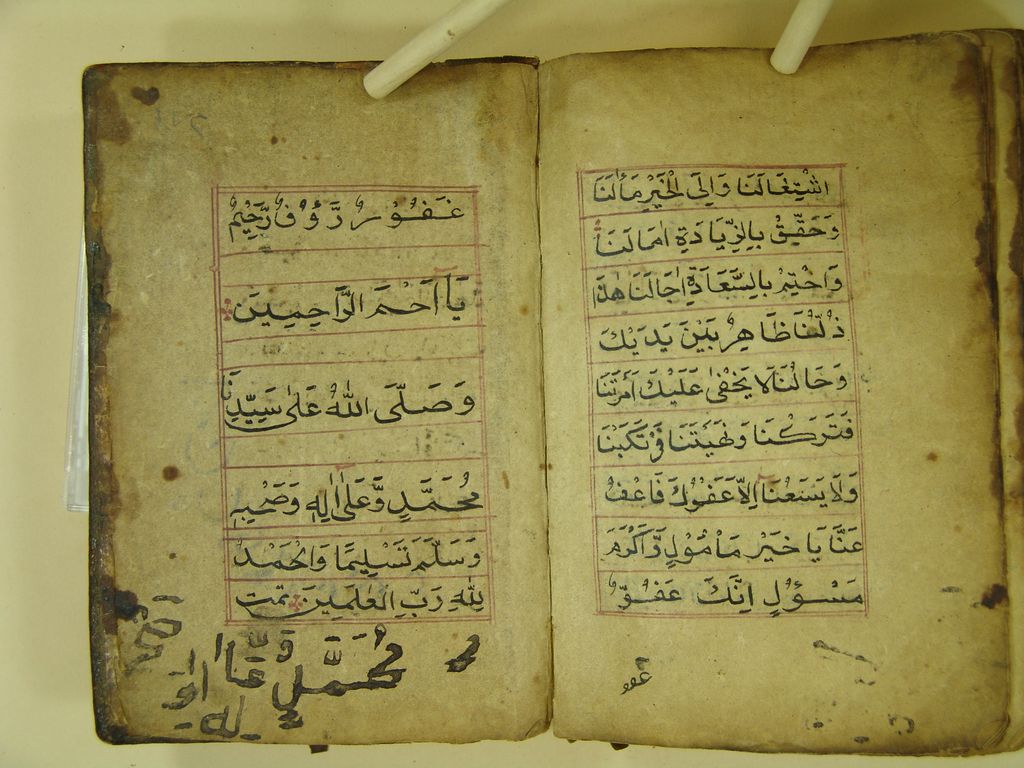 اشْتِغَالَنَا وَاِلَى الْخَيْرِ مَاٰلَنَا
وَحَقِّقْ بِالزِّيَادَةِ اٰمَالَنَا
وَاخْتِمْ بِالسَّعَادَةِ اٰجَالَنَا هٰذَا
ذُلُّنَا ظَاهِرٌ بَيْنَ يَدَيْكَ
وَحَالُنَا لَا يَخْفٰى عَلَيْكَ اَمَرْتَنَا
فَتَرَكْنَا وَنَهَيْتَنَا فَرْتَكَبْنَا
وَلَا يَسَعُنَا اِلَّا عَفْوُكَ فَاعْفُ
عَنَّا يَا خَيْرَ مَاْمُوْلٍ وَّاَكْرَمَ
مَسْؤُلٍ اِنَّكَ عَفُوٌّ
غفو
غَفُوْرٌ رَّؤُوْفٌ رَّحِيْمٌ
يَا اَرْحَمَ الرَّاحِمِيْنَ
وَصَلَّى اللّٰهُ عَلٰى سَيِّدِنَا
مُحَمَّدٍ وَّعَلٰى اٰلِهٖ وَصَحْبِهٖ
وَسَلَّمَ تَسْلِيْمًا وَالْحَمْدُ
لِلّٰهِ رَبِّ الْعٰلَمِيْنَ تمت
مُحَمَّدٍ